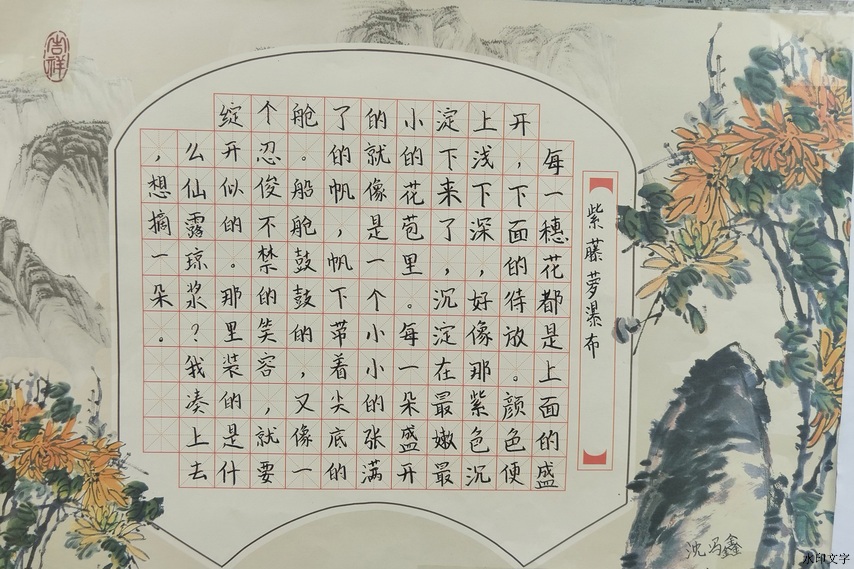 紫藤萝瀑布
每一穗花都是上面的盛
开，下面的待放。颜色便
上浅下深，好像那紫色沉
淀下来了，沉淀在最嫩最
小的花苞里。每一朵盛开
的就像是一个小小的张满
了的帆，帆下带着尖底的
舱。船舱鼓鼓的，又像一
个忍俊不禁的笑容，就要
绽开似的。那里装的是什
么仙露琼浆？我凑上去
，想摘一朵。
吉祥
沈冯鑫
水印文字